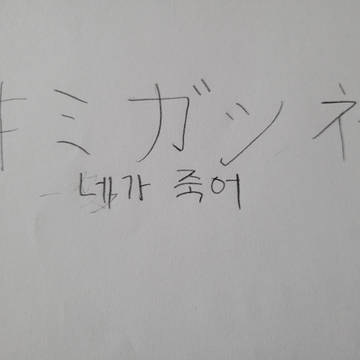 キミガシネ
네가 죽어